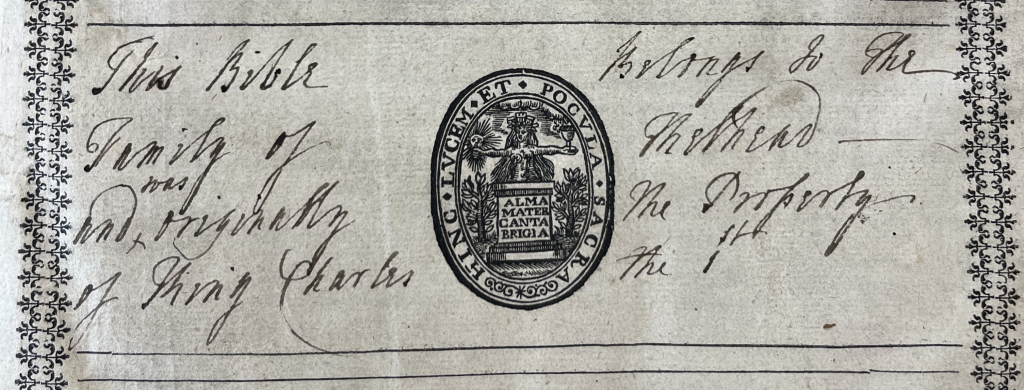 This Bible Belongs to the
Family of Methead
was
and originally the Property
of King Charles the 1st
HINC · LVCEM · ET · POCVLA · SACRA
ALMA
MATER
CANTA
BRIGIA